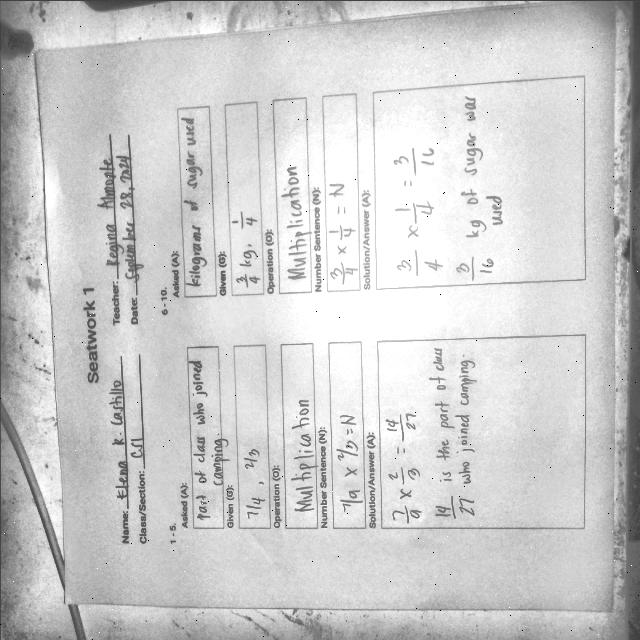 Seatwork 1
Name: Elena R. Castillo
Teacher: Regina
Class/Section: C11
Date: September 28, 2024
1 - 5.
Asked (A):
part of class who joined
camping
Given (G):
7/9, 2/3
Operation (O):
Multiplication
Number Sentence (N):
7/9 x 2/3 = N
Solution/Answer (A):
7/9 x 2/3 = 14/27
14/27 is the part of class
who joined camping.
6 - 10.
Asked (A):
kilograms of sugar used
Given (G):
3/4 kg, 1/4
Operation (O):
Multiplication
Number Sentence (N):
3/4 x 1/4 = N
Solution/Answer (A):
3/4 x 1/4 = 3/16
3/16 kg of sugar was
used